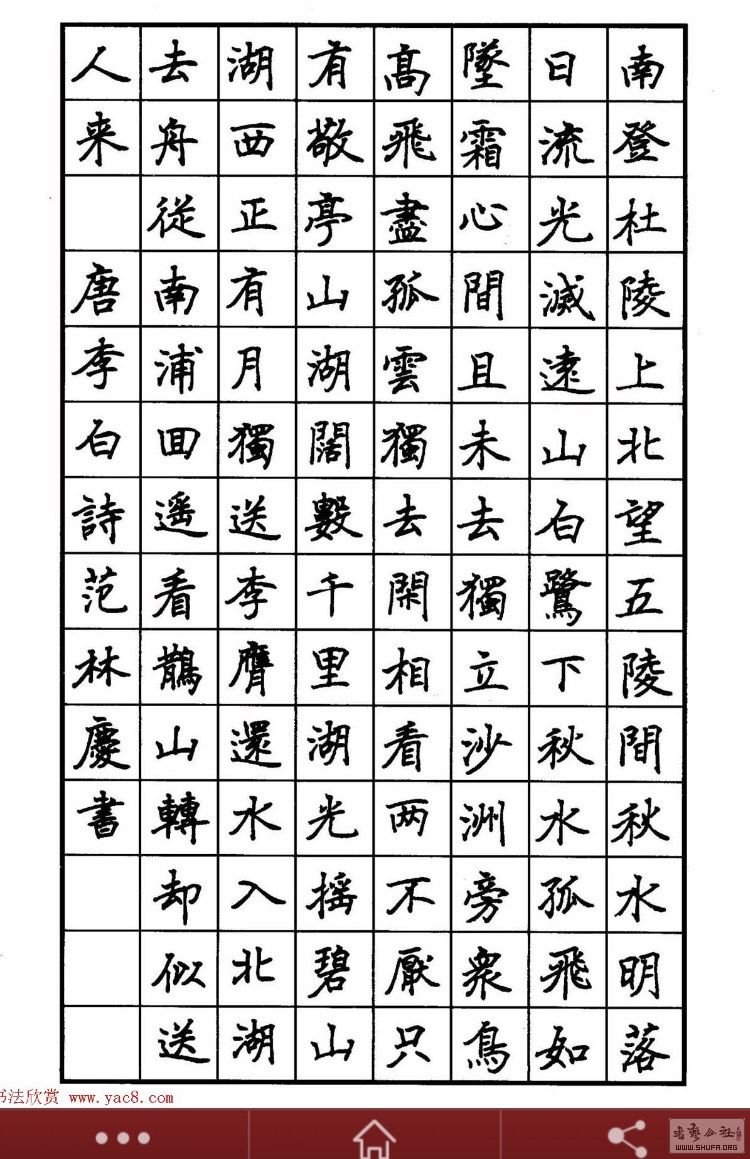 南登杜陵上北望五陵間秋水明落
日流光滅遠山白鷺下秋水孤飛如
墜霜心間且未去獨立沙洲旁衆鳥
高飛盡孤雲獨去閑相看两不厭只
有敬亭山湖闊數千里湖光摇碧山
湖西正有月獨送李膺還水入北湖
去舟從南浦回遥看鵲山轉却似送
人来 唐李白詩范林慶書
书法欣赏 www.yac8.com
書藝公社
WWW.SHUFA.ORG